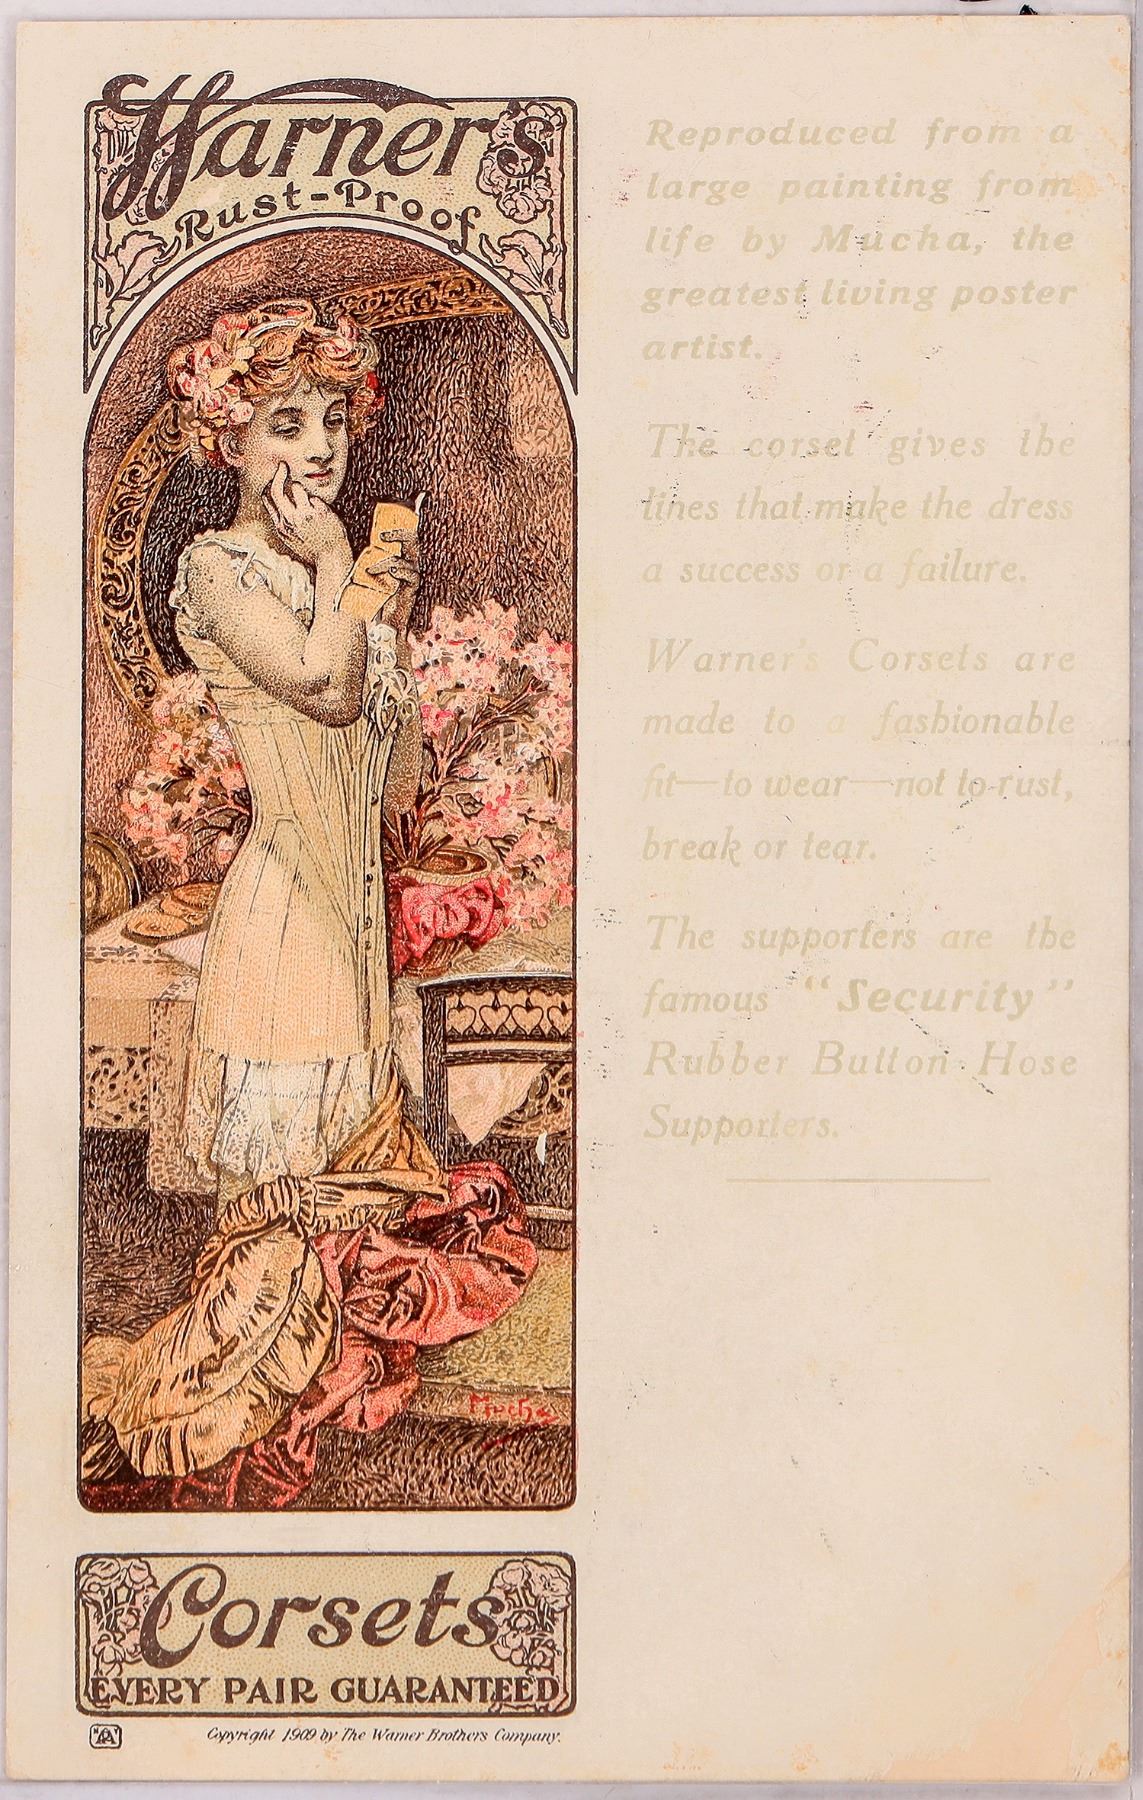 Warner's
Rust-Proof
Mucha
Corsets
EVERY PAIR GUARANTEED
Copyright 1909 by The Warner Brothers Company.
Reproduced from a
large painting from
life by Mucha, the
greatest living poster
artist.
The corset gives the
lines that make the dress
a success or a failure.
Warner's Corsets are
made to a fashionable
fit—to wear—not to rust,
break or tear.
The supporters are the
famous "Security"
Rubber Button Hose
Supporters.